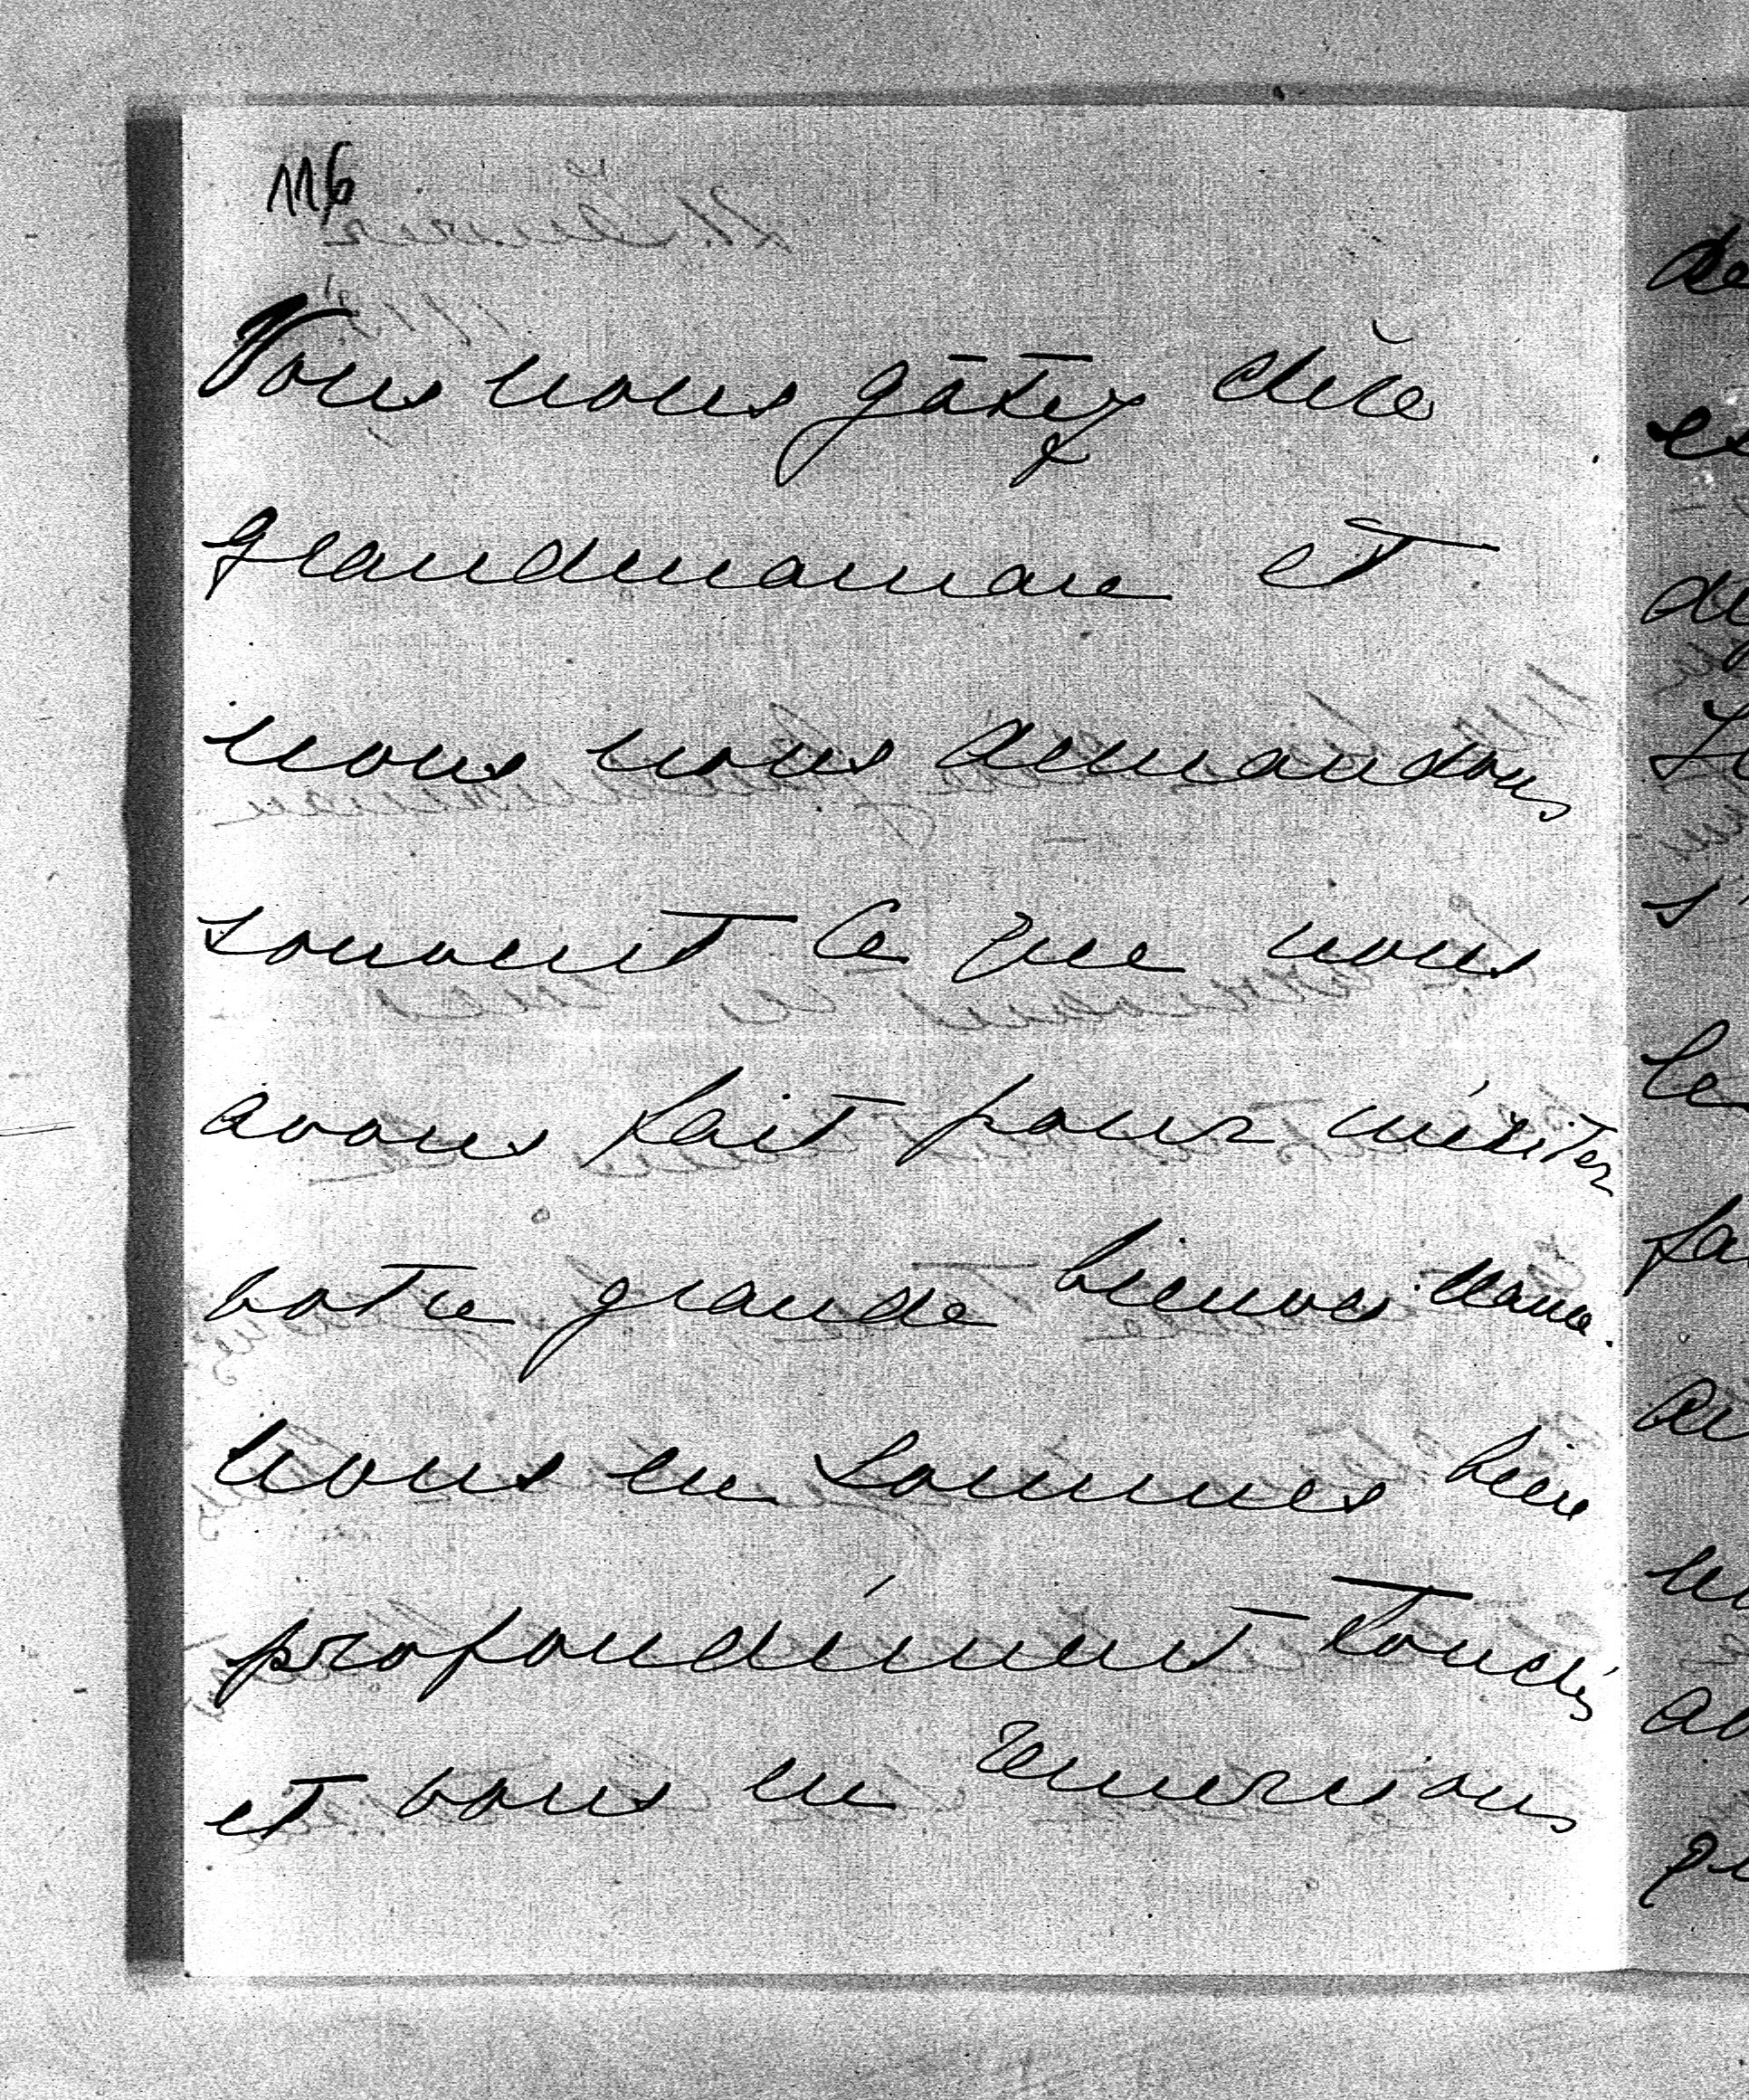 116
Vous nous gâtez chère
grandmaman et
nous nous demandons
souvent ce que nous
avons fait pour mériter
votre grande bienveillance.
Nous en sommes bien
profondément touchés
et vous en remercions